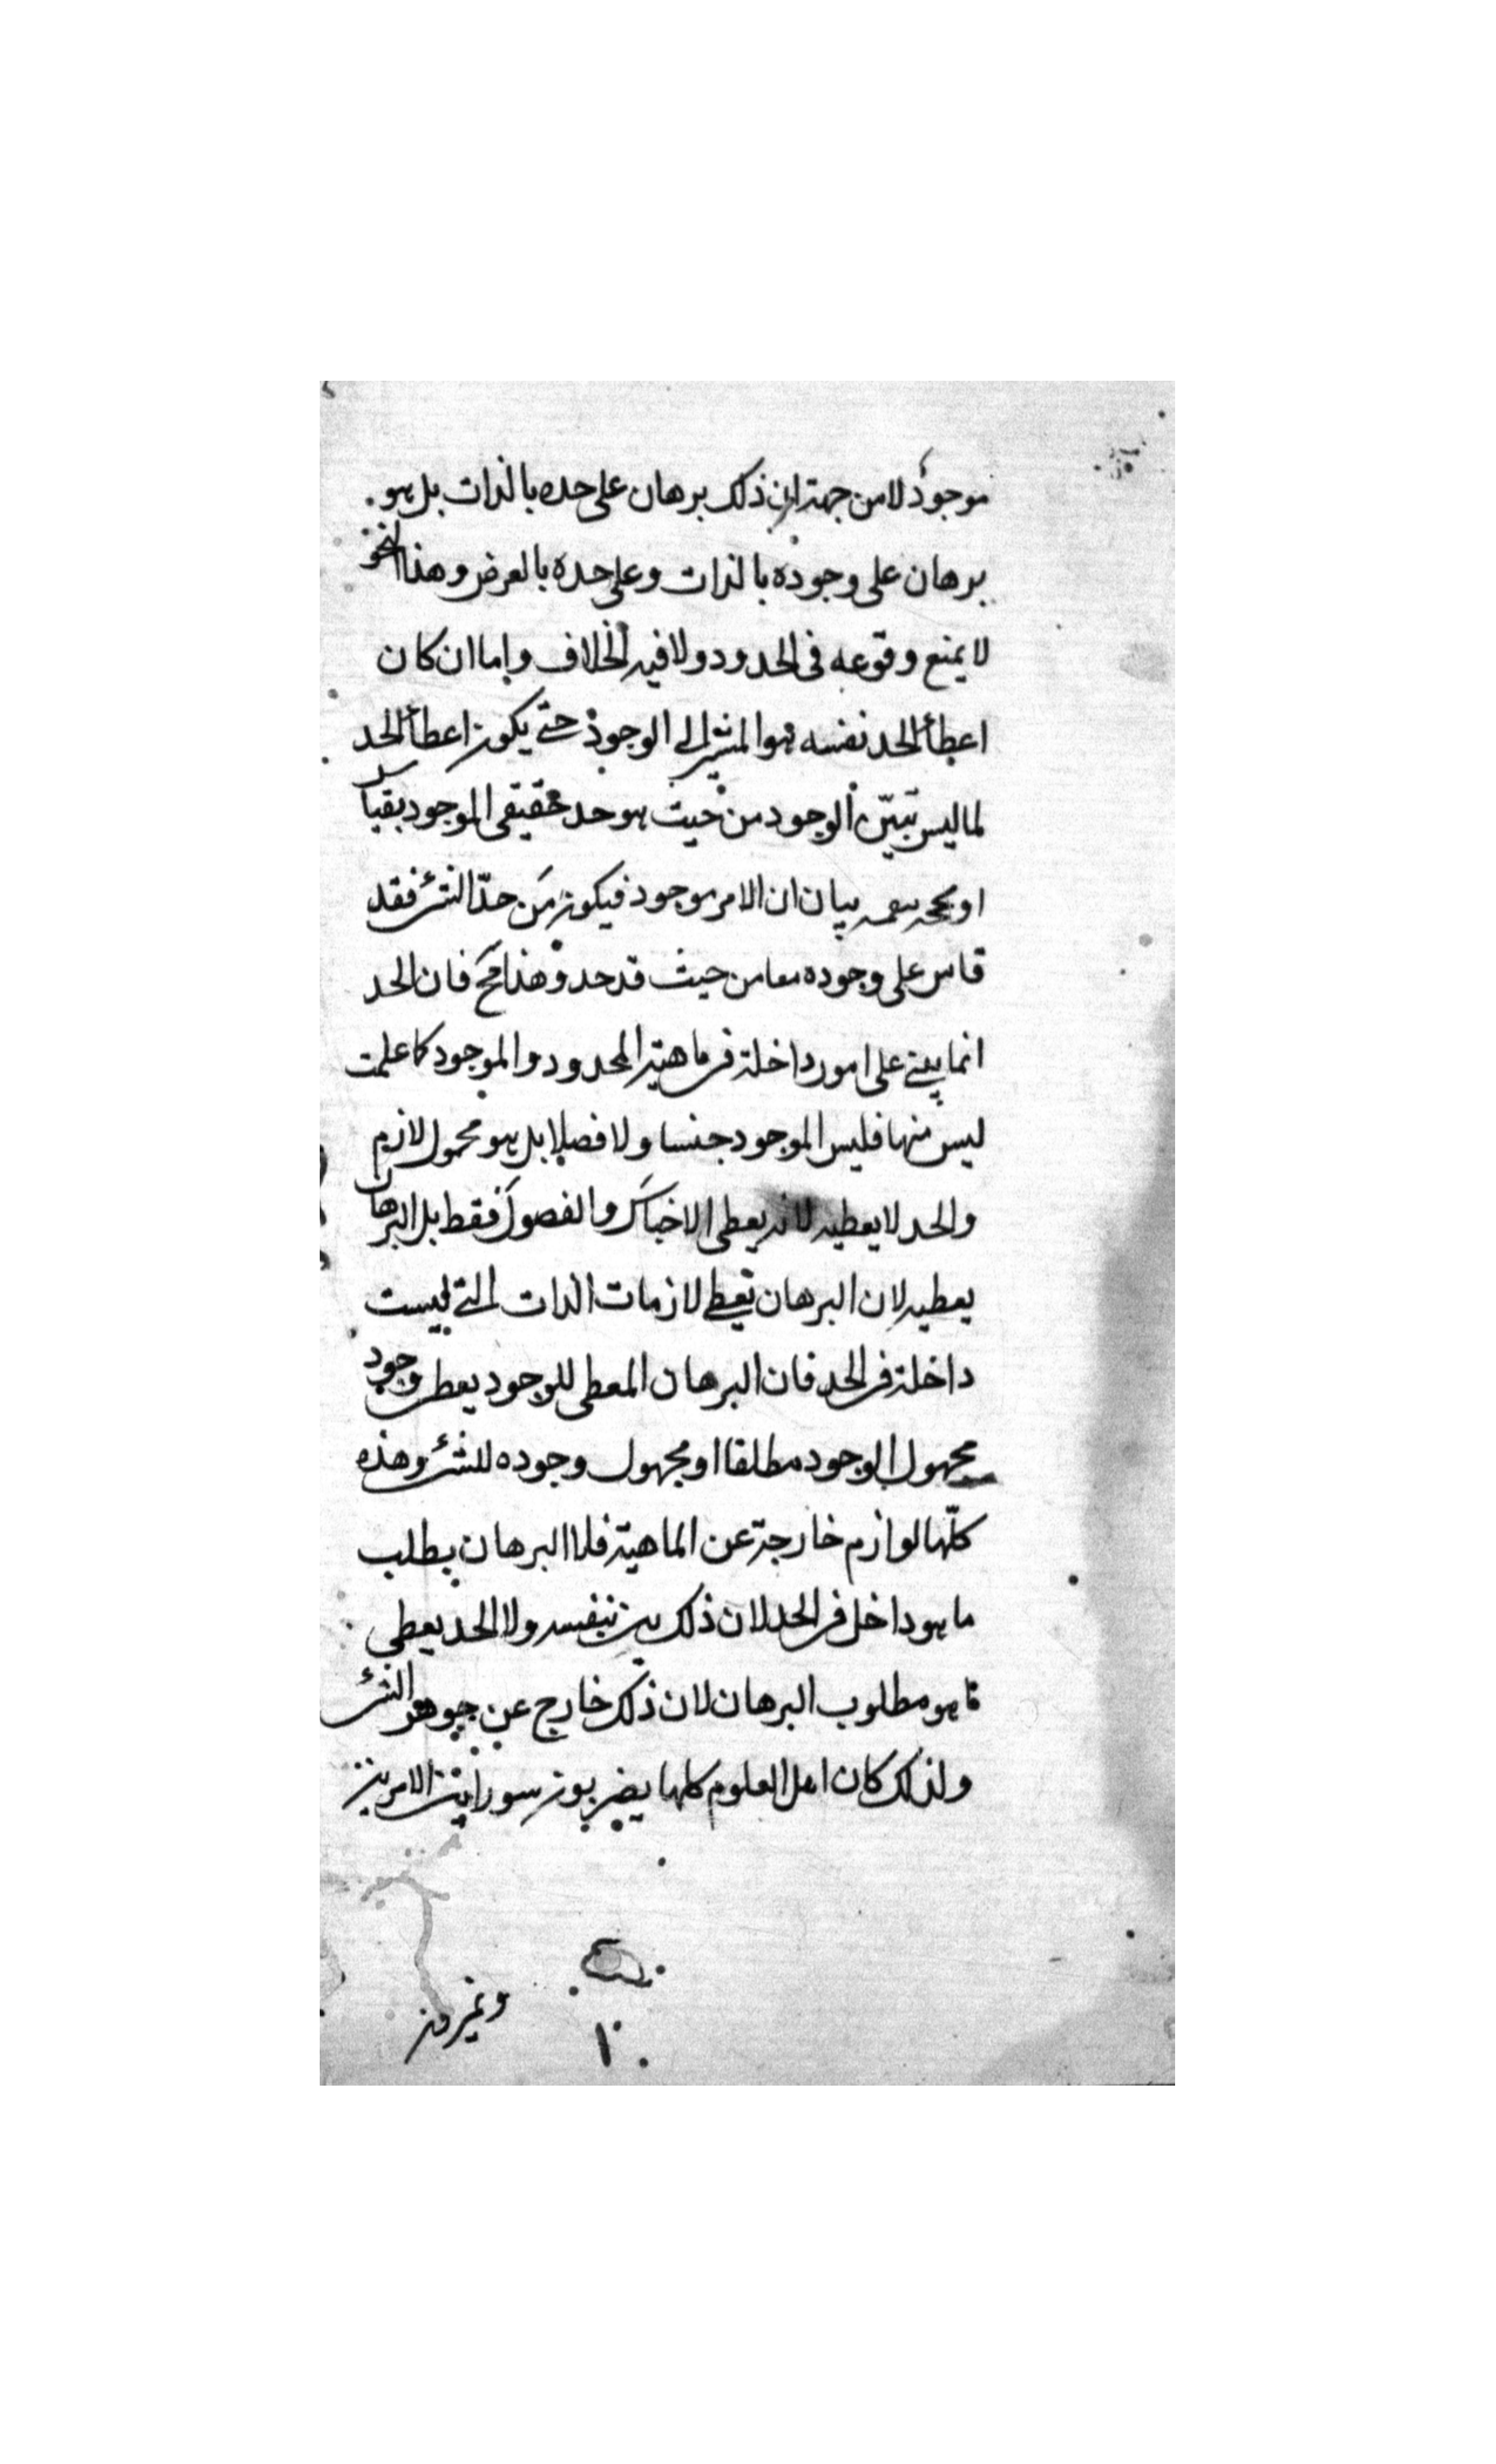 موجود لا من جهة ان ذلك برهان على حده بالذات بل هو
برهان على وجوده بالذات وعلى حده بالعرض وهذا النحو
لا يمنع وقوعه فى الحدود ولا فيه الخلاف واما ان كان
اعطأ الحد نفسه هو المشير الى الوجود حتى يكون اعطأ الحد
لما ليس تبين الوجود من حيث هو حد حقيقى الموجود بقياس
او بيان ان الامر موجود فيكون من حدّ الشئ فقد
قاس على وجوده معا من حيث قد حد وهذا مح فان الحد
انما يبنى على امور داخلة فى ماهية المحدود والموجود كما علمت
ليس منها فليس الموجود جنسا ولا فصلا بل هو محمول لازم
والحد لا يعطيه لانه يعطى الاجناس والفصول فقط بل البرهان
يعطيه لان البرهان يعطى لازمات الذات التى ليست
داخلة فى الحد فان البرهان المعطى للوجود يعطى وجود
مجهول الوجود مطلقا او مجهول وجوده للشئ وهذه
كلّها لوازم خارجة عن الماهية فلا البرهان يطلب
ما هو داخل فى الحد لان ذلك بين بنفسه ولا الحد يعطى
ما هو مطلوب البرهان لان ذلك خارج عن جوهر الشئ
ولذلك كان اهل العلوم كلها يضربون سورا بين الامرين
ويميزون
١٠